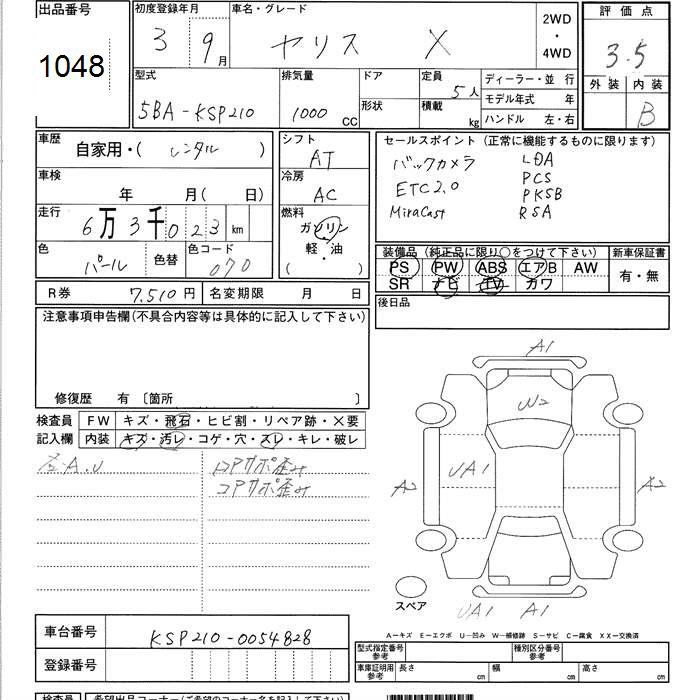 出品番号
1048
初度登録年月
3 9月
車名・グレード
ヤリス X
2WD
・
4WD
評価点
3.5
外装 内装
B
型式
5BA-KSP210
排気量
1000 cc
ドア
形状
定員 5人
積載 kg
ディーラー・並行
モデル年式 年
ハンドル 左・右
車歴
自家用・( レンタル )
車検
年 月( 日)
走行
6万3千023km
色
パール
色替
色コード
070
シフト
AT
冷房
AC
燃料
ガソリン
軽・油
( )
セールスポイント(正常に機能するものに限ります)
バックカメラ LDA
ETC2.0 PCS
PKSB
MiraCast RSA
装備品(純正品に限り○をつけて下さい)
PS PW ABS エアB AW
SR ナビ TV カワ
新車保証書
有・無
後日品
R券 7,510円
名変期限 月 日
注意事項申告欄(不具合内容等は具体的に記入して下さい)
修復歴 有〔箇所 〕
検査員
記入欄
FW キズ・飛石・ヒビ割・リペア跡・X要
内装 キズ・汚レ・コゲ・穴・スレ・キレ・破レ
A.U
コアサポ歪み
コアサポ歪み
A1
W2
UA1
A2
A2
スペア
UA1 A1
A-キズ E-エクボ U-凹み W-補修跡 S-サビ C-腐食 XX-交換済
車台番号
KSP210-0054828
登録番号
型式指定番号
参考
種別区分番号
参考
車庫証明用
参考
長さ cm
幅 cm
高さ cm
検査員
希望出品コーナー(ご希望のコーナー名を記入して下さい)